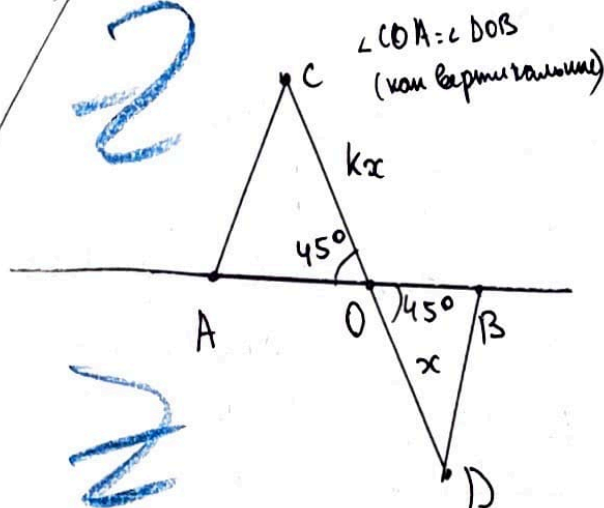 ∠COA=∠DOB
(как вертикальные)
C
kx
45°
A
O
45°
B
x
D